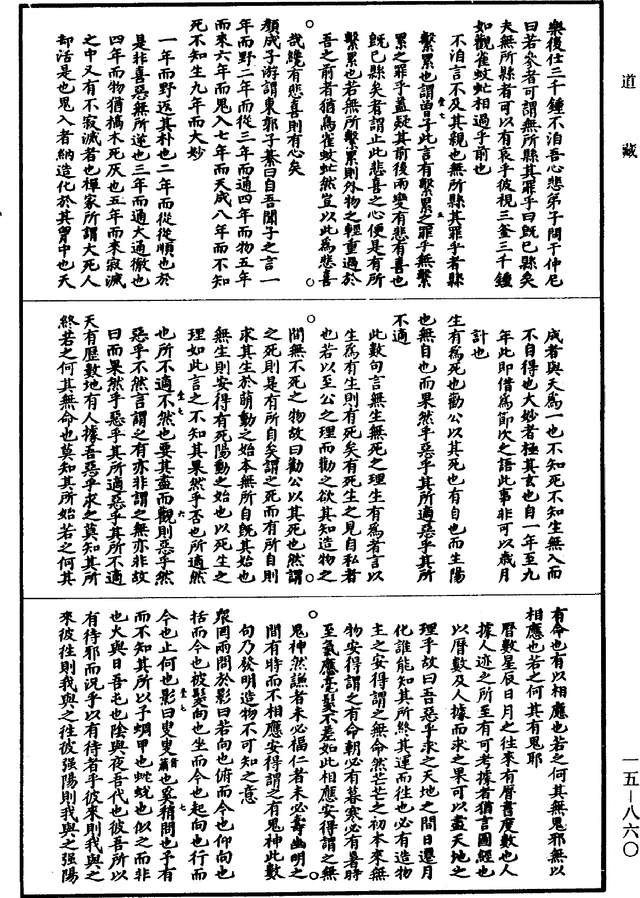 道藏
樂後仕三千鍾不洎吾心悲弟子問于仲尼
曰若參者可謂無所縣其罪乎曰既已縣矣
夫無所縣者可以有哀乎彼視三釜三千鍾
如觀雀蚊虻相過乎前也
不洎言不及其親也無所縣其罪乎者縣
繫累也謂曾子此言有繫累之罪乎無繫
累之罪乎蓋疑其前後兩變有悲有喜也
既已縣矣者謂止此悲喜之心便是有所
繫累也若無所繫累則外物之輕重過於
吾之前者猶鳥雀蚊虻然豈以此為悲喜
哉纔有悲喜則有心矣
顏成子游謂東郭子綦曰自吾聞子之言一
年而野二年而從三年而通四年而物五年
而來六年而鬼入七年而天成八年而不知
死不知生九年而大妙
一年而野返其朴也二年而從從順也於
是非喜惡無所逆也三年而通大通徹也
四年而物猶槁木死灰也五年而來寂滅
之中又有不寂滅者也禪家所謂大死人
却活是也鬼入者納造化於其胷中也天
成者與天為一也不知死不知生無入而
不自得也大妙者極其玄也自一年至九
年此即借為節次之語此事非可以歲月
計也
生有為死也勸公以其死也有自也而生陽
也無自也而果然乎惡乎其所適惡乎其所
不適
此數句言無生無死之理生有為者言以
生為有生則有死矣有死生之見自私者
也若以至公之理而勸之欲其知造物之
間無不死之物故曰勸公以其死也然謂
之死則是有所自矣謂之死而有所自則
求其生於萌動之始本無所自既其始也
無生則安得有死陽動之始也以死生之
理如此言之不知其果然乎否也所適然
也所不適不然也要其盡而觀則惡乎然
惡乎不然言謂之有亦非謂之無亦非故
曰而果然乎惡乎其所適惡乎其所不適
天有歷數地有人據吾惡乎求之莫知其所
終若之何其無命也莫知其所始若之何其
有命也有以相應也若之何其無鬼邪無以
相應也若之何其有鬼耶
曆數星辰日月之往來有曆書度數也人
據人迹之所至有可考據者猶言圖經也
以曆數及人據而求之果可以盡天地之
理乎故曰吾惡乎求之天地之間日還月
化誰能知其所終其運而往也必有造物
主之安得謂之無命然芒芒之初本來無
物安得謂之有命朝必有暮寒必有暑時
至氣應毫髮不差如此相應安得謂之無
鬼神然謙者未必福仁者未必壽幽明之
間有時而不相應安得謂之有鬼神此數
句乃發明造物不可知之意
眾罔兩問於影曰若向也俯而今也仰向也
括而今也被髮向也坐而今也起向也行而
今也止何也影曰叟叟蕭也奚稍問也予有
而不知其所以予蜩甲也蛇蛻也似之而非
也火與日吾屯也陰與夜吾代也彼吾所以
有待邪而況乎以有待者乎彼來則我與之
來彼往則我與之往彼強陽則我與之强陽
一五－八六〇